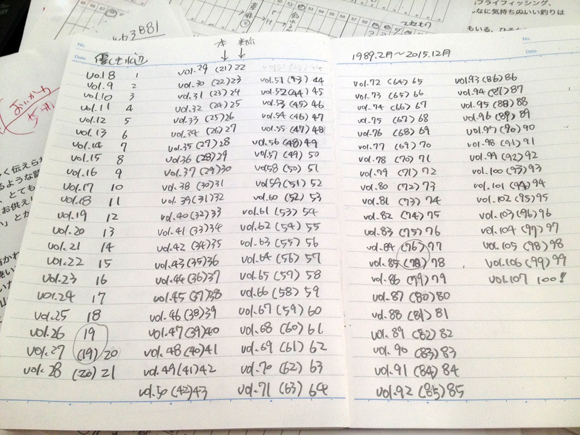 フライフィッシング、
No.
Date
↓ ↓
vol.8 1
vol.9 2
vol.10 3
vol.11 4
vol.12 5
vol.13 6
vol.14 7
vol.15 8
vol.16 9
vol.17 10
vol.18 11
vol.19 12
vol.20 13
vol.21 14
vol.22 15
vol.23 16
vol.24 17
vol.25 18
vol.26 19
vol.27 (19) 20
vol.28 (20) 21
vol.29 (21) 22
vol.30 (22) 23
vol.31 (23) 24
vol.32 (24) 25
vol.33 (25) 26
vol.34 (26) 27
vol.35 (27) 28
vol.36 (28) 29
vol.37 (29) 30
vol.38 (30) 31
vol.39 (31) 32
vol.40 (32) 33
vol.41 (33) 34
vol.42 (34) 35
vol.43 (35) 36
vol.44 (36) 37
vol.45 (37) 38
vol.46 (38) 39
vol.47 (39) 40
vol.48 (40) 41
vol.49 (41) 42
vol.50 (42) 43
vol.51 (43) 44
vol.52 (44) 45
vol.53 (45) 46
vol.54 (46) 47
vol.55 (47) 48
vol.56 (48) 49
vol.57 (49) 50
vol.58 (50) 51
vol.59 (51) 52
vol.60 (52) 53
vol.61 (53) 54
vol.62 (54) 55
vol.63 (55) 56
vol.64 (56) 57
vol.65 (57) 58
vol.66 (58) 59
vol.67 (59) 60
vol.68 (60) 61
vol.69 (61) 62
vol.70 (62) 63
vol.71 (63) 64
1989.2月〜2015.12月
vol.72 (64) 65
vol.73 (65) 66
vol.74 (66) 67
vol.75 (67) 68
vol.76 (68) 69
vol.77 (69) 70
vol.78 (70) 71
vol.79 (71) 72
vol.80 (72) 73
vol.81 (73) 74
vol.82 (74) 75
vol.83 (75) 76
vol.84 (76) 77
vol.85 (78) 78
vol.86 (79) 79
vol.87 (80) 80
vol.88 (81) 81
vol.89 (82) 82
vol.90 (83) 83
vol.91 (84) 84
vol.92 (85) 85
vol.93 (86) 86
vol.94 (87) 87
vol.95 (88) 88
vol.96 (89) 89
vol.97 (90) 90
vol.98 (91) 91
vol.99 (92) 92
vol.100 (93) 93
vol.101 (94) 94
vol.102 (95) 95
vol.103 (96) 96
vol.104 (97) 97
vol.105 (98) 98
vol.106 (99) 99
vol.107 100!